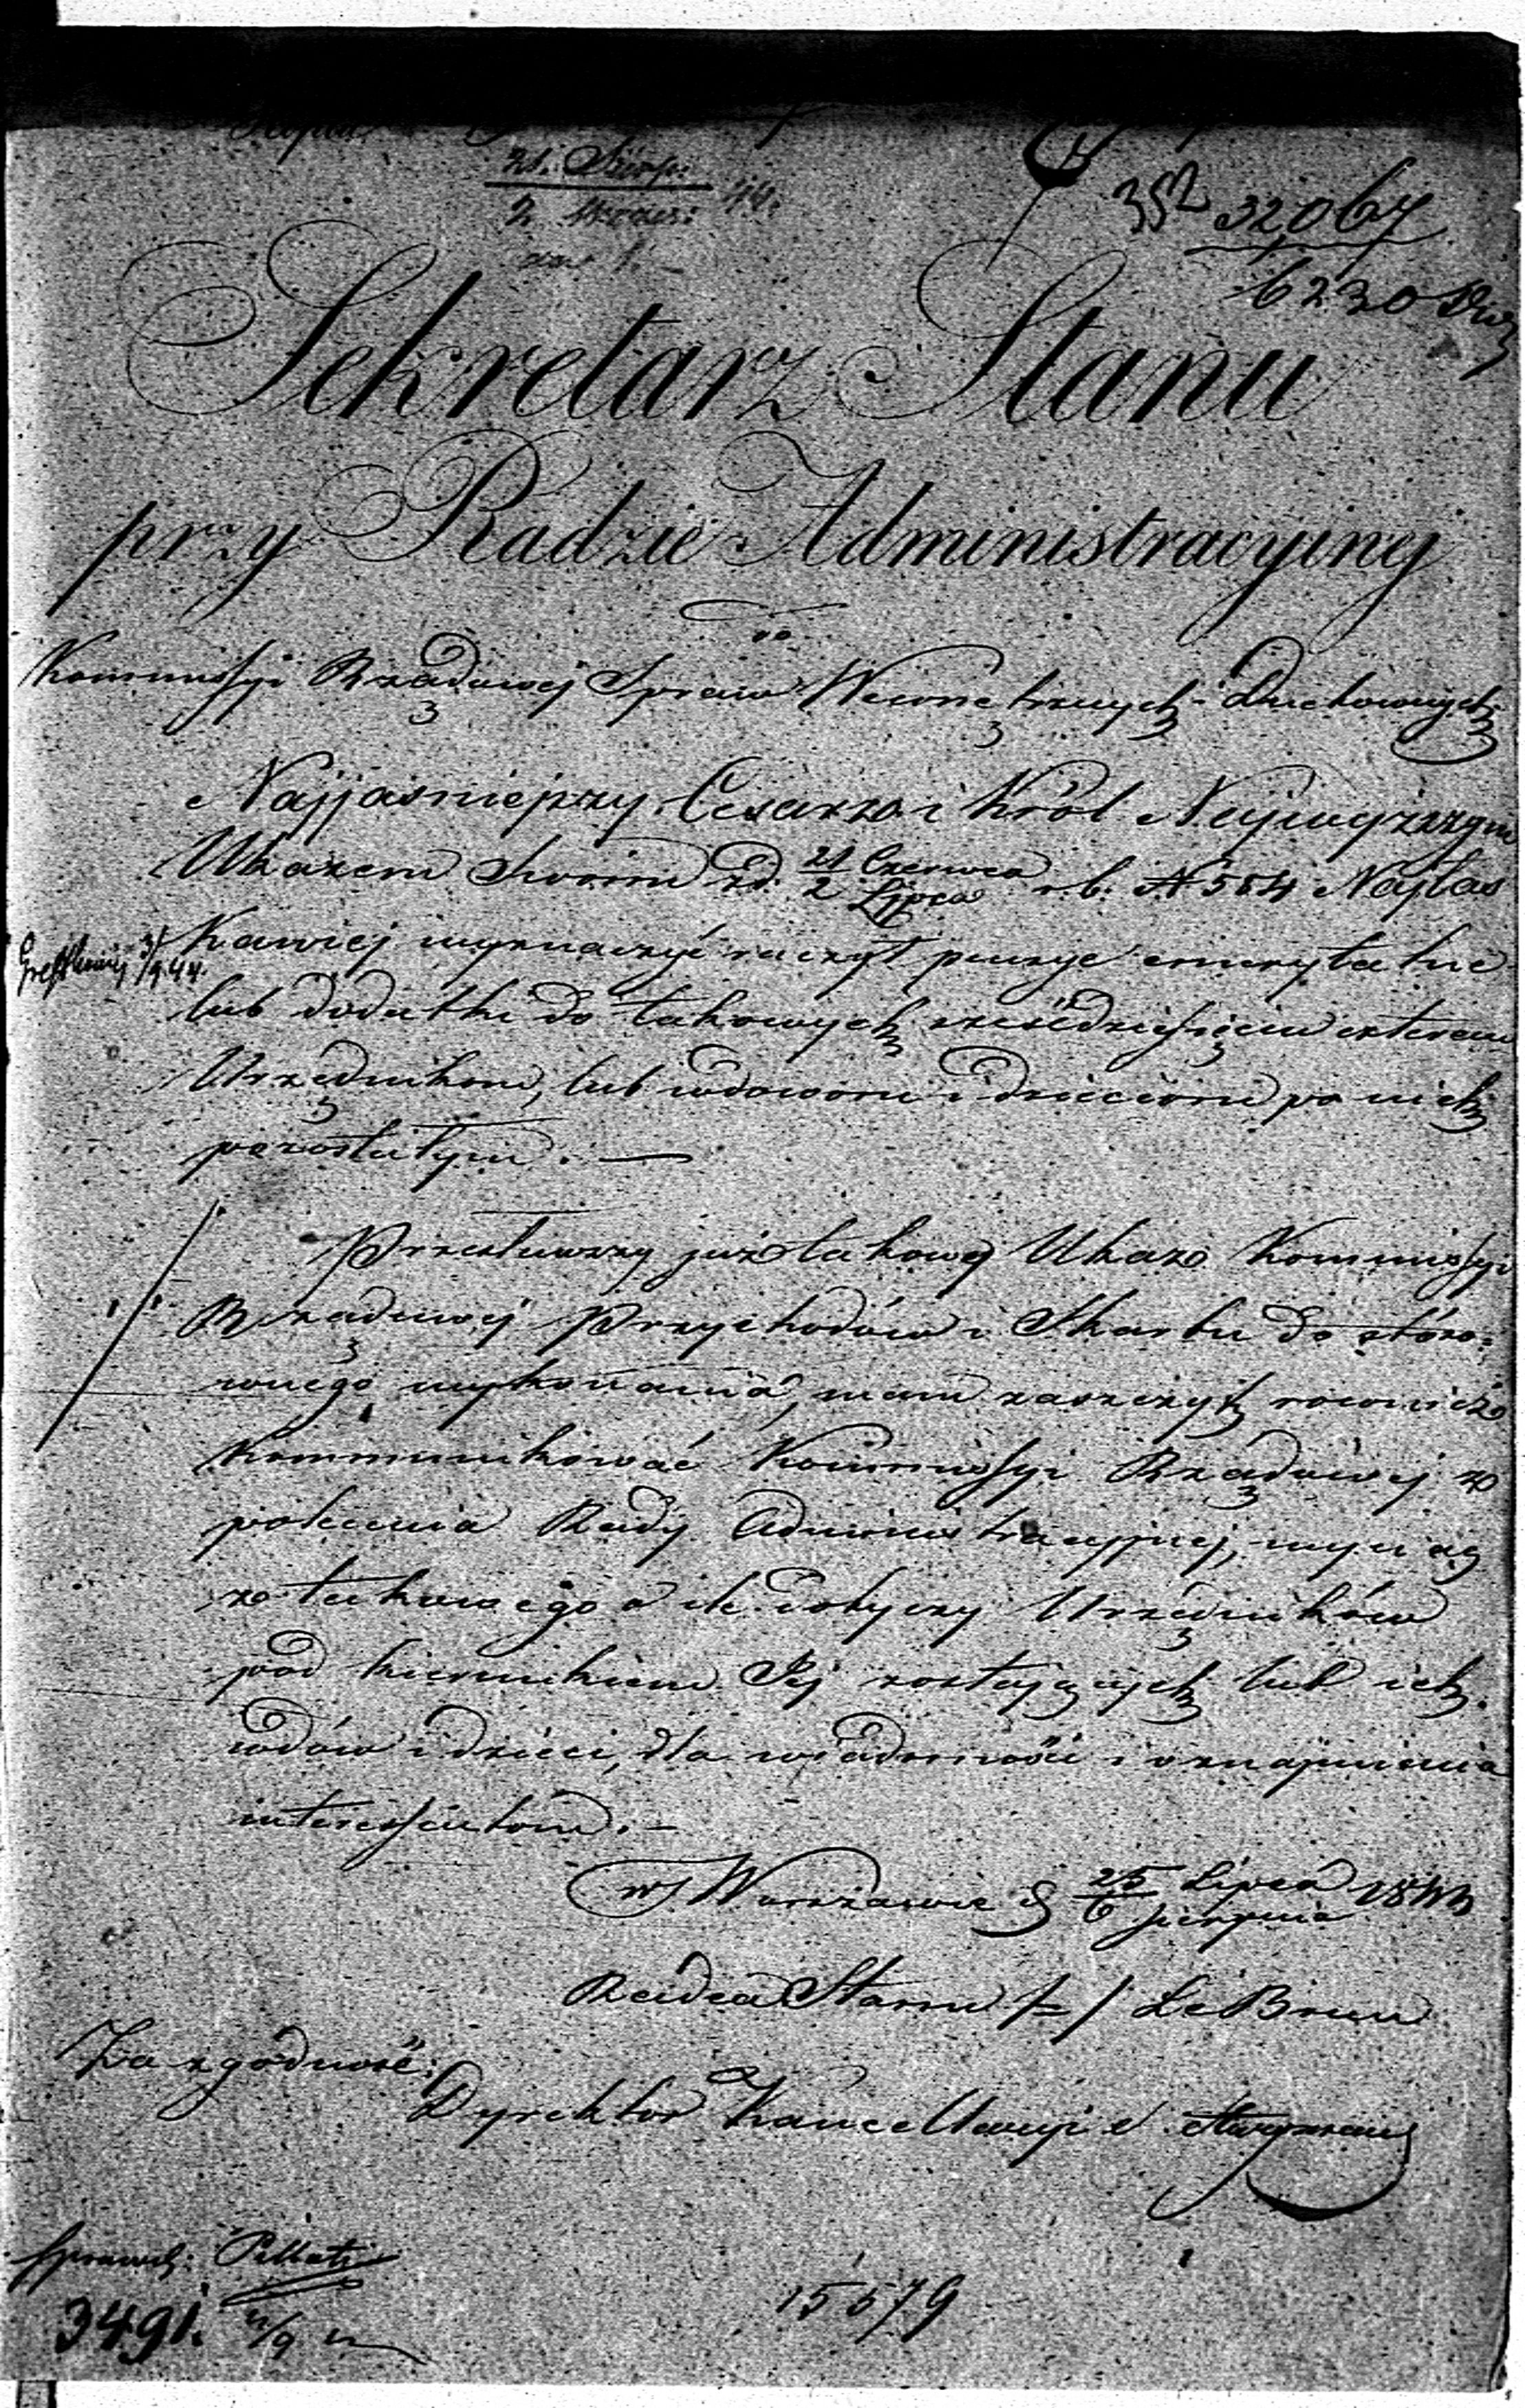 Kopia
21. Sierp:
2 Wrześ: 44.
352 32067
6230
Sekretarz Stanu
przy Radzie Administracyjnej
do
Kommissyi Rządowej Spraw Wewnętrznych i Duchownych
Najjaśniejszy Cesarz i Król Najwyższym
Ukazem Swoim z d. 21 Czerwca / 2 Lipca r. b. N 554 Najłas
kawiej wyznaczyć raczył pensye emerytalne
3/9 44.
lub dodatki do takowych sześćdziesięciu czterem
Urzędnikom, lub wdowom i dzieciom po nich
pozostałym. —
Przesławszy już takowy Ukaz Kommissyi
Rządowej Przychodów i Skarbu do stóso-
wnego wykonania, mam zaszczyt również
kommunikować Kommissyi Rządowej z
polecenia Rady Administracyjnej, wyciąg
z takowego o ile dotyczy Urzędników
pod kierunkiem Jej zostających lub ich
wdów i dzieci, dla wiadomości i oznajmienia
interessentom. —
w Warszawie d 25 Lipca / 6 Sierpnia 1844
Radca Stanu /–/ Le Brun
Za zgodność:
Dyrektor Kancellaryi
3491.
15579